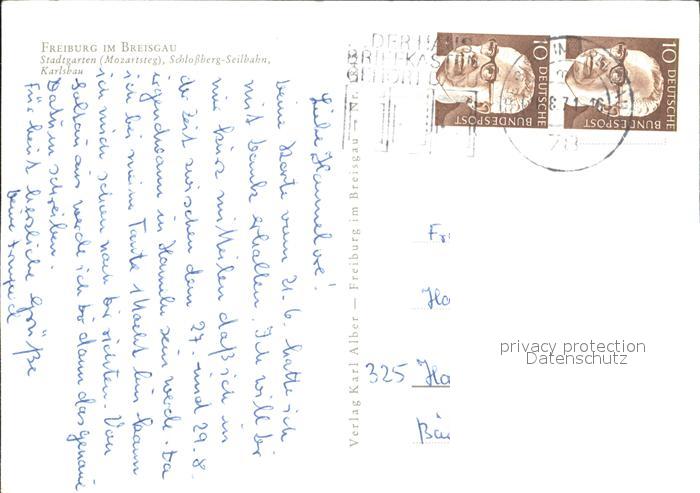 FREIBURG IM BREISGAU
Stadtgarten (Mozartsteg), Schloßberg-Seilbahn,
Karlsbau
Liebe Hannelore!
Deine Karte vom 21.6. hatte ich
mit Dank erhalten. Ich will dir
nur kurz mitteilen daß ich in
der Zeit zwischen dem 27. und 29.8.
irgendwann in Hameln sein werde. Da
ich bei meine Tante 1 Nacht bin kann
ich mich schon nach dir richten. Von
aus werde ich dir dann das genaue
Datum schreiben.
Für heut herzliche Grüße
Deine
Verlag Karl Alber — Freiburg im Breisgau — Nr.
DER HAUS
BRIEFKASTEN
GEHÖRT
10 DEUTSCHE BUNDESPOST
10 DEUTSCHE BUNDESPOST
Fr
Ha
325 Ha
Bäu
privacy protection
Datenschutz